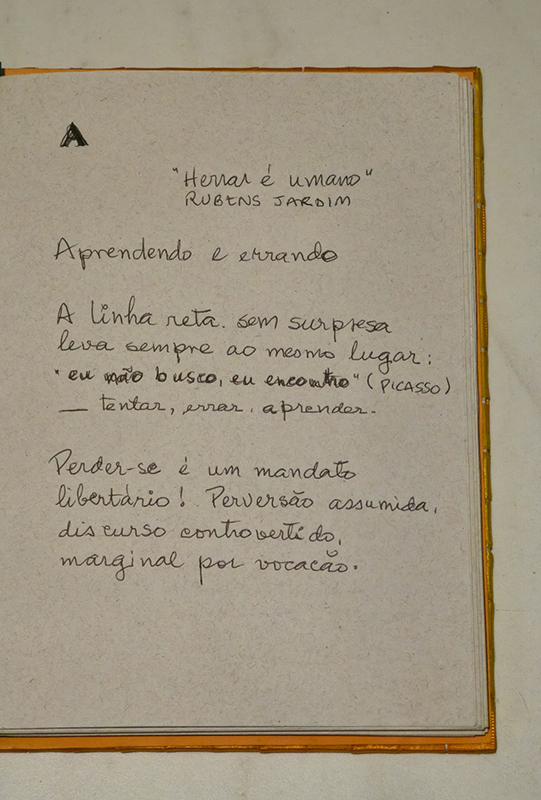 A
"Herrar é umano"
RUBENS JARDIM
Aprendendo e errando
A linha reta. sem surpresa
leva sempre ao mesmo lugar:
"eu não busco, eu encontro" (PICASSO)
— tentar, errar, aprender.
Perder-se é um mandato
libertário! Perversão assumida,
discurso controvertido,
marginal por vocacão.